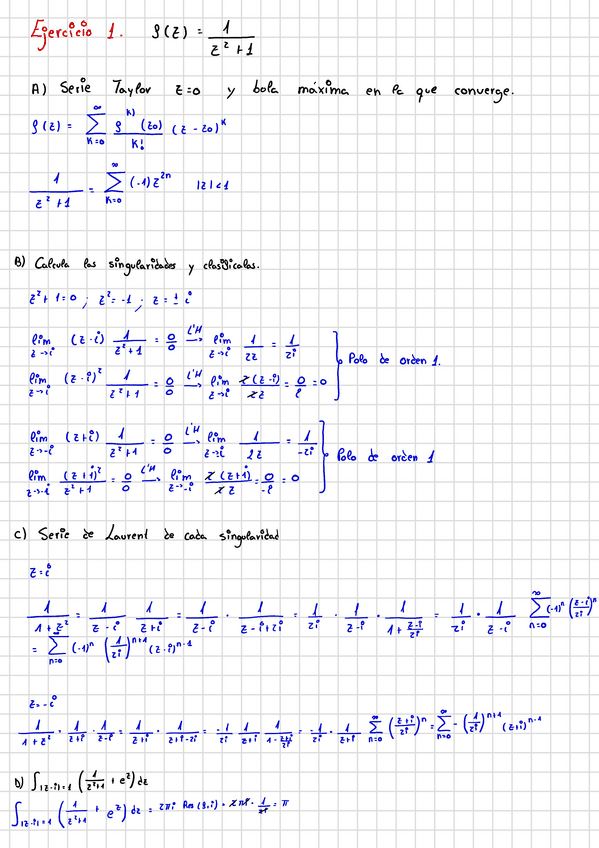 Ejercicio 1. f(z) = 1/(z² + 1)
A) Serie Taylor z=0 y bola máxima en la que converge.
f(z) = ∑_{k=0}^{∞} f^{k)}(z0)/k! (z - z0)^k
1/(z² + 1) = ∑_{k=0}^{∞} (-1) z^{2n} |z| < 1
B) Calcula las singularidades y clasifícalas.
z² + 1 = 0 ; z² = -1 ; z = ± i
lím_{z→i} (z - i) 1/(z² + 1) = 0/0 →^{L'H} lím_{z→i} 1/2z = 1/2i
lím_{z→i} (z - i)² 1/(z² + 1) = 0/0 →^{L'H} lím_{z→i} 2(z - i)/2z = 0/i = 0
Polo de orden 1.
lím_{z→-i} (z + i) 1/(z² + 1) = 0/0 →^{L'H} lím_{z→i} 1/2z = 1/-2i
lím_{z→-i} (z + i)²/(z² + 1) = 0/0 →^{L'H} lím_{z→-i} 2(z + i)/2z = 0/-i = 0
Polo de orden 1
C) Serie de Laurent de cada singularidad
z = i
1/(1 + z²) = 1/(z - i) 1/(z + i) = 1/(z - i) · 1/(z - i + 2i) = 1/2i · 1/(z - i) · 1/(1 + (z - i)/2i) = 1/2i · 1/(z - i) ∑_{n=0}^{∞} (-1)^n ((z - i)/2i)^n
= ∑_{n=0}^{∞} (-1)^n (1/2i)^{n+1} (z - i)^{n-1}
z = -i
1/(1 + z²) = 1/(z + i) · 1/(z - i) = 1/(z + i) · 1/(z + i - 2i) = -1/2i 1/(z + i) 1/(1 - (z + i)/2i) = -1/2i · 1/(z + i) ∑_{n=0}^{∞} ((z + i)/2i)^n = ∑_{n=0}^{∞} - (1/2i)^{n+1} (z + i)^{n-1}
D) ∫_{|z - i| = 1} (1/(z² + 1) + e^z) dz
∫_{|z - i| = 1} (1/(z² + 1) + e^z) dz = 2πi Res(f, i) = 2πi · 1/2i = π